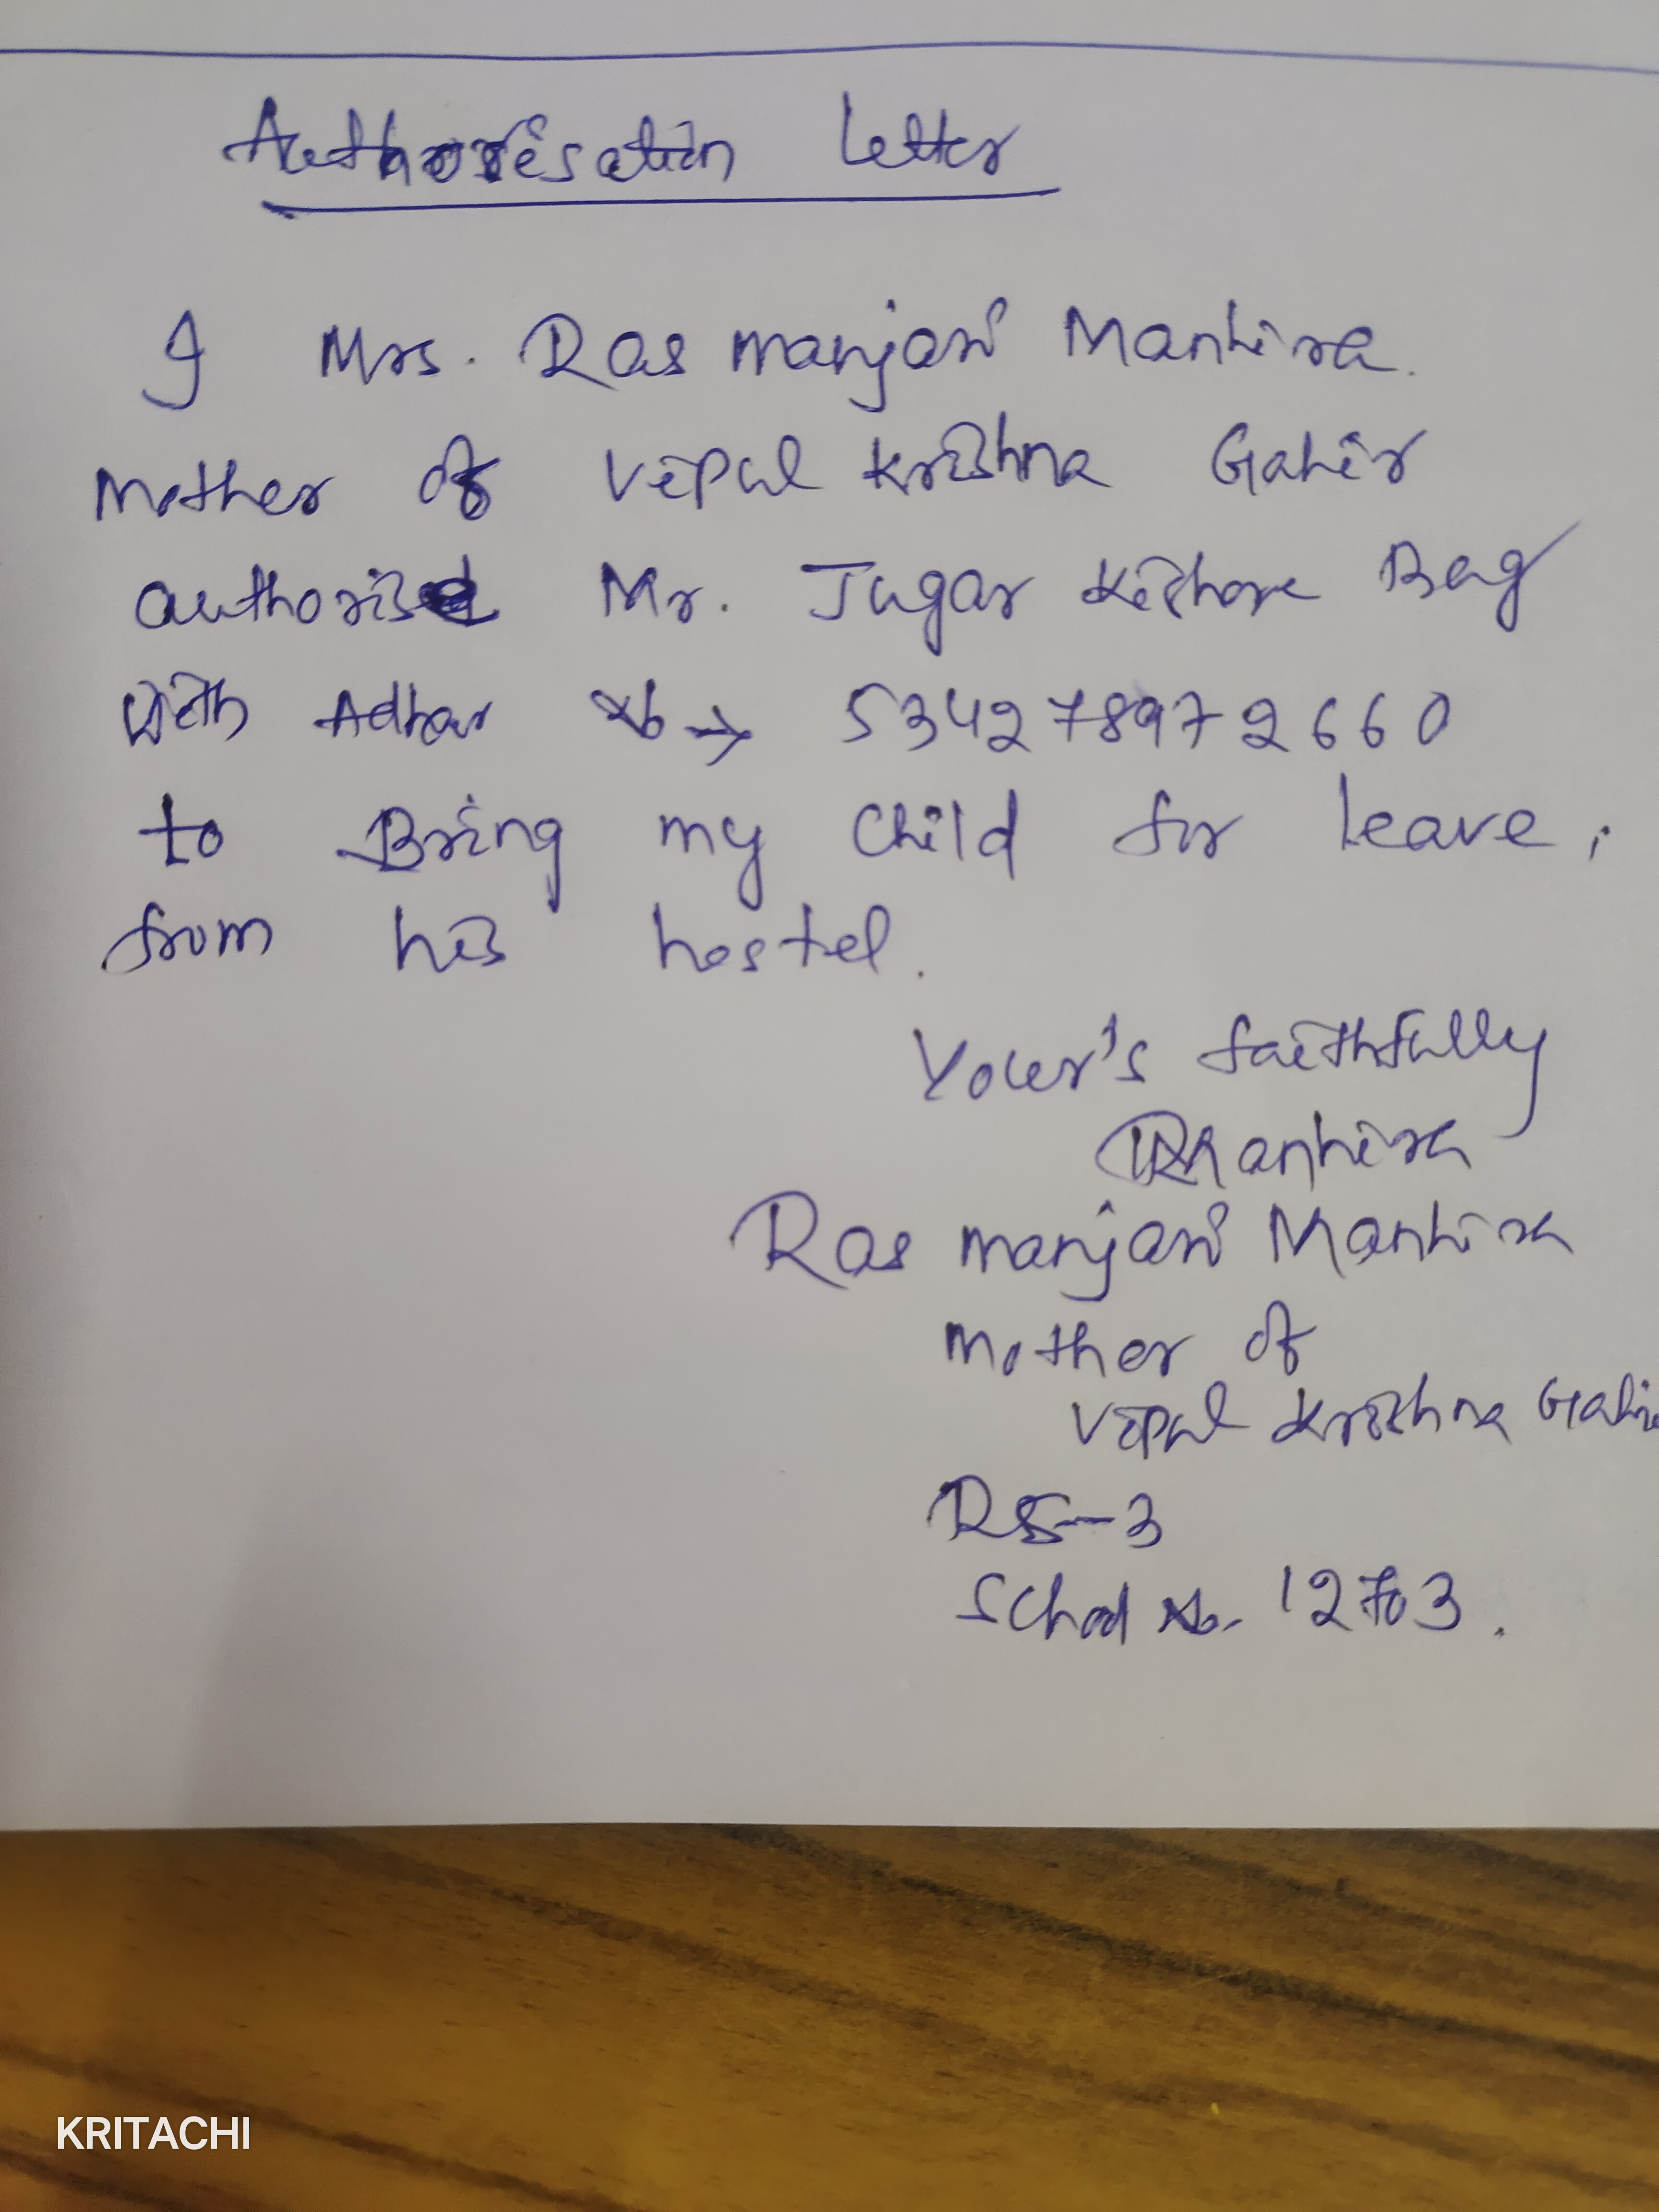 Authorisation Letter
I Mrs. Ras manjari Manhira.
Mother of Vipul Krishna Gahir
authorise Mr. Jugar Kishore Bag
with Adhar No → 534278972660
to Bring my Child for leave.
from his hostel.
Your's faithfully
RManhira
Ras manjari Manhira
Mother of
Vipul Krishna Gahir
RS-3
School No. 12703.
KRITACHI